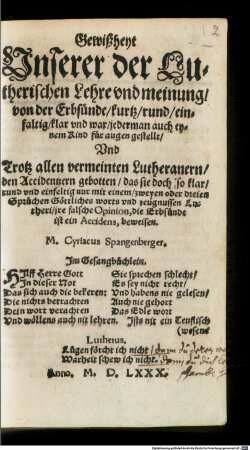 2
Gewißheyt
Unserer der Lu-
therischen Lehre vnd meinung/
von der Erbsünde/kurtz/rund/ein-
faltig/klar vnd war/jederman auch ey-
nem Kind für augen gestellt/
Vnd
Trotz allen vermeinten Lutheranern/
den Accidentzern gebotten/das sie doch so klar/
rund vnd einfeltig nur mit einem/zweyen oder dreien
Sprüchen Göttliches worts vnd zeugnussen Lu-
theri/jre falsche Opinion, die Erbsünde
ist ein Accidens, beweisen.
M. Cyriacus Spangenberger.
Im Gesangbüchlein.
Hilff Herre Gott
In dieser Not
Das sich auch die bekeren:
Die nichts betrachten
Dein wort verachten
Und wöllens auch nit lehren.
Sie sprechen schlecht/
Es sey nicht recht/
Vnd habens nie gelesen/
Auch nie gehort
Das Edle wort
Ists nit ein Teuflisch
(wesens
Lutherus.
Lügen förcht ich nicht/
Warheit schew ich nicht.
Anno, M. D. LXXX.